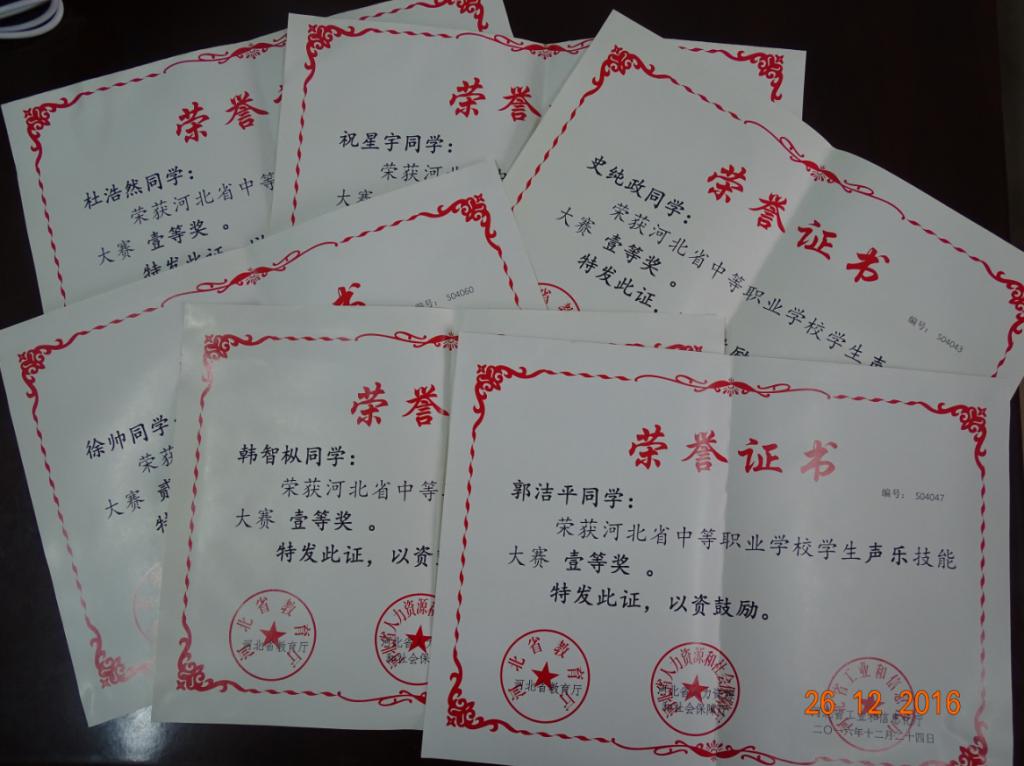 荣誉
杜浩然同学：
荣获河北省中等
大赛 壹等奖 。
特发此证，以
荣誉
祝星宇同学：
荣获河
大赛
荣誉证书
编号： S04043
史纯政同学：
荣获河北省中等职业学校学生声
大赛 壹等奖 。
特发此证，
励
书
编号： S04060
徐帅同学
荣获
大赛 贰
特
荣誉
韩智枞同学：
荣获河北省中等
大赛 壹等奖 。
特发此证，以资
河北省教育厅
河北省教育厅
省人力资源和
和社会保
荣誉证书
编号： S04047
郭洁平同学：
荣获河北省中等职业学校学生声乐技能
大赛 壹等奖 。
特发此证，以资鼓励。
河北省教育厅
河北省教育厅
省人力资源和社会
和社会保障厅
省工业和信息
省工业和信息化厅
二〇一六年十二月二十四日
26 12 2016